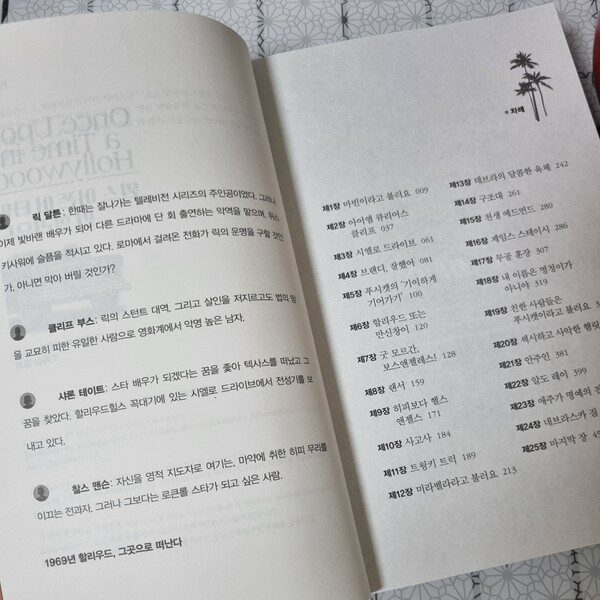 Once Upon
a Time in
Hollywood
릭 달튼: 한때는 잘나가는 텔레비전 시리즈의 주인공이었다. 그러나
이제 빛바랜 배우가 되어 다른 드라마에 단 회 출연하는 악역을 맡으며, 위스
키사워에 슬픔을 적시고 있다. 로마에서 걸려온 전화가 릭의 운명을 구할 것인
가, 아니면 막아 버릴 것인가?
클리프 부스: 릭의 스턴트 대역, 그리고 살인을 저지르고도 법의 망
을 교묘히 피한 유일한 사람으로 영화계에서 악명 높은 남자.
샤론 테이트: 스타 배우가 되겠다는 꿈을 좇아 텍사스를 떠났고 그
꿈을 찾았다. 할리우드힐스 꼭대기에 있는 시엘로 드라이브에서 전성기를 보
내고 있다.
찰스 맨슨: 자신을 영적 지도자로 여기는, 마약에 취한 히피 무리를
이끄는 전과자. 그러나 그보다는 로큰롤 스타가 되고 싶은 사람.
1969년 할리우드, 그곳으로 떠난다
차례
제1장 마빈이라고 불러요 009
제2장 아이엠 큐리어스
클리프 037
제3장 시엘로 드라이브 061
제4장 브랜디, 잘했어 081
제5장 푸시캣의 '기이하게
기어가기' 100
제6장 할리우드 또는
만신창이 122
제7장 굿 모르간,
보스앤젤레스! 128
제8장 랜서 159
제9장 히피보다 헬스
앤젤스 171
제10장 사고사 184
제11장 트윙키 트럭 189
제12장 미라벨라라고 불러요 213
제13장 데브라의 달콤한 육체 242
제14장 구조대 261
제15장 천생 에드먼드 280
제16장 제임스 스테이시
제17장 무공 훈장 307
제18장 내 이름은 멍청이가
아니야 319
제19장 친한 사람들은
푸시캣이라고 불러요
제20장 섹시하고 사악한 햄릿
제21장 안주인 381
제22장 알도 레이 399
제23장 애주가 명예의 전
제24장 네브라스카 짐
제25장 마지막 장 45